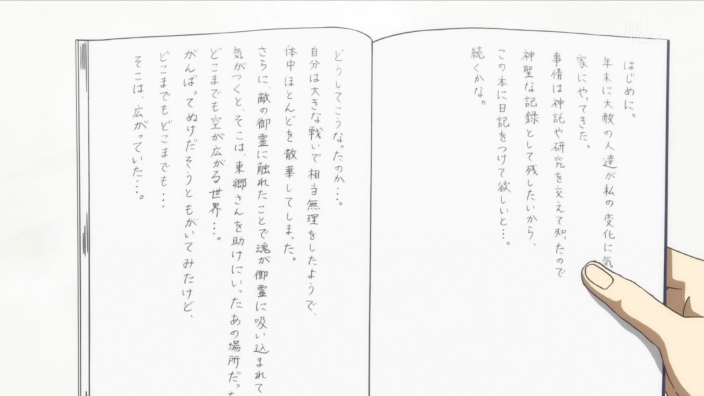 はじめに。
年末に大赦の人達が私の変化に気
家にやってきた。
事情は神託や研究を交えて知ったので
神聖な記録として残したいから、
この本に日記をつけて欲しいと…。
続くかな。
どうしてこうなったのか…。
自分は大きな戦いで相当無理をしたようで、
体中ほとんどを散華してしまった。
さらに、敵の御霊に触れたことで魂が御霊に吸い込まれて
気がつくと、そこは、東郷さんを助けにいったあの場所だった
どこまでも空が広がる世界…。
がんばってぬけだそうともがいてみたけど、
どこまでもどこまでも…
そこは、広がっていた…。